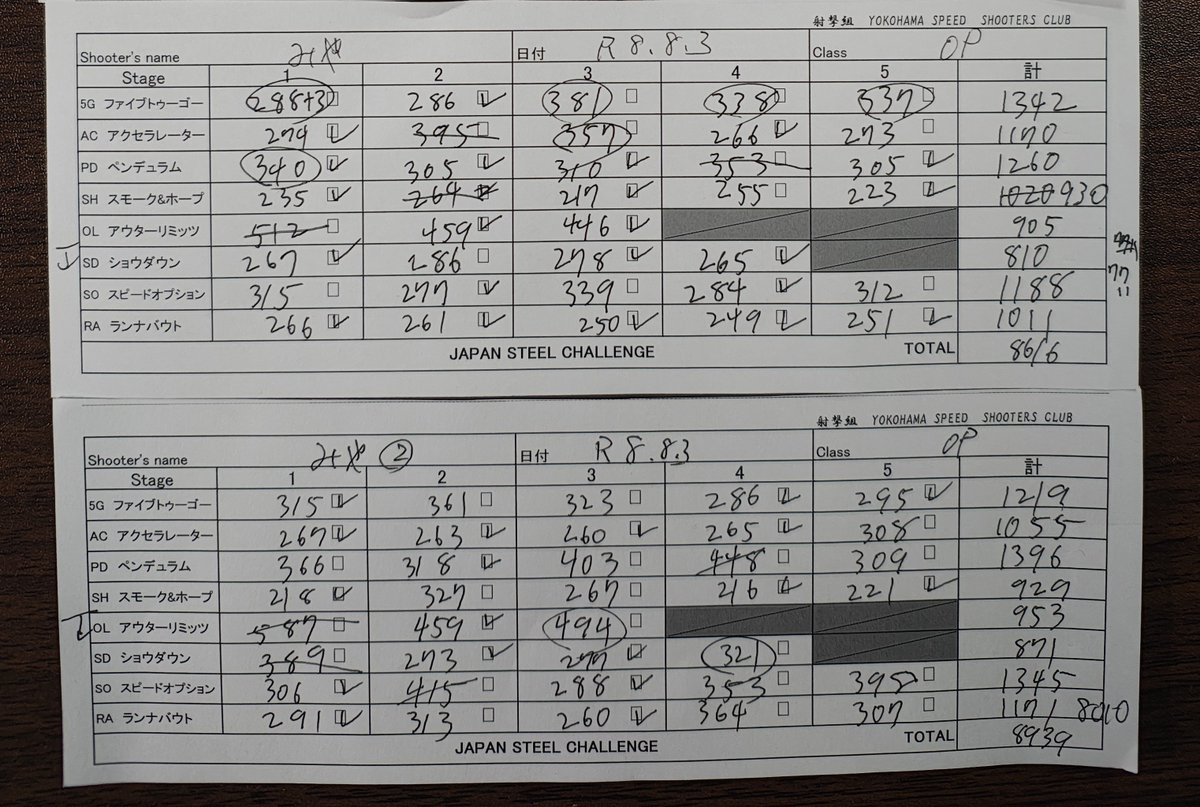 射撃組 YOKOHAMA SPEED SHOOTERS CLUB
Shooter's name 日付 R 8.8.3 Class OP
Stage 1 2 3 4 5 計
5G ファイブトゥーゴー 288+3 286 381 338 337 1342
AC アクセラレーター 274 395 357 266 273 1170
PD ペンデュラム 340 305 310 353 305 1260
SH スモーク&ホープ 235 264 217 255 223 1020 930
OL アウターリミッツ 512 459 446 905
SD ショウダウン 267 286 278 265 810
77
SO スピードオプション 315 277 339 284 312 1188
RA ランナバウト 266 261 250 249 251 1011
JAPAN STEEL CHALLENGE TOTAL 8616
射撃組 YOKOHAMA SPEED SHOOTERS CLUB
Shooter's name ② 日付 R 8.8.3 Class OP
Stage 1 2 3 4 5 計
5G ファイブトゥーゴー 315 361 323 286 295 1219
AC アクセラレーター 267 263 260 265 308 1055
PD ペンデュラム 366 318 403 448 309 1396
SH スモーク&ホープ 218 327 267 216 221 929
OL アウターリミッツ 587 459 494 953
SD ショウダウン 389 273 277 321 871
SO スピードオプション 306 415 288 353 395 1345
RA ランナバウト 291 313 260 364 307 1171 8010
JAPAN STEEL CHALLENGE TOTAL 8939